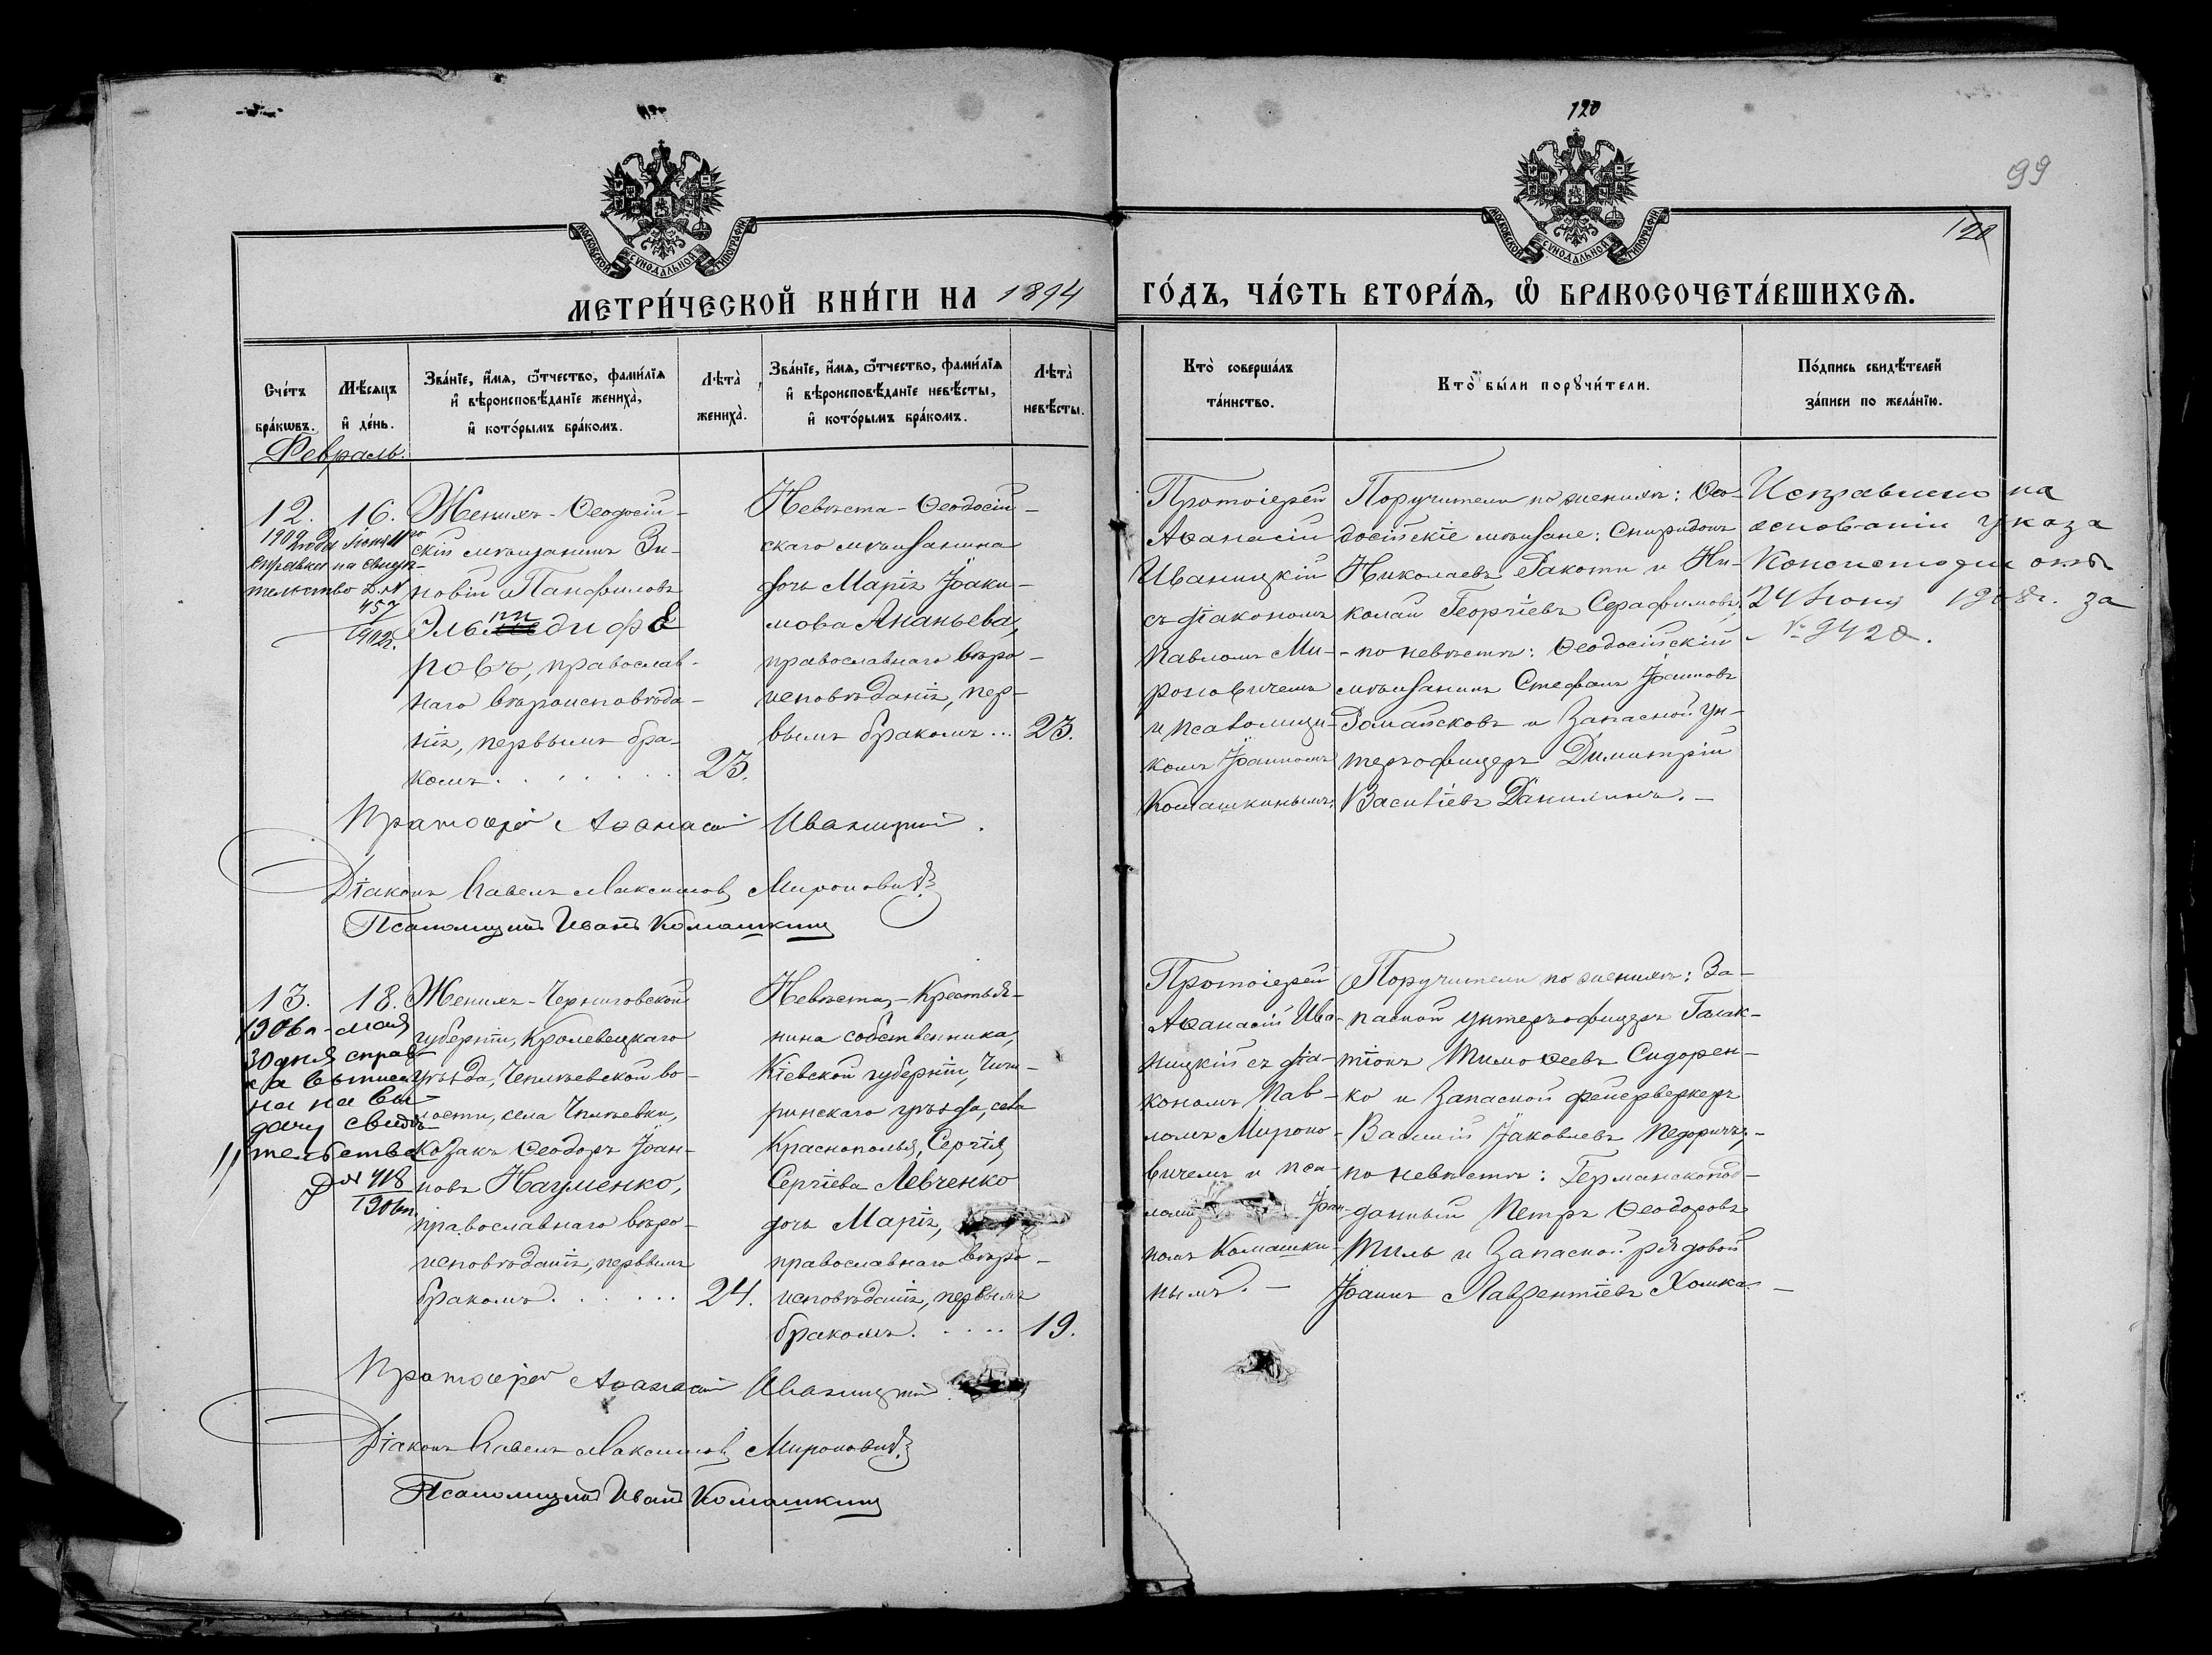 120
99
120
МОСКОВСКОЙ СѴНОДАЛЬНОЙ ТИПОГРАФІИ
МОСКОВСКОЙ СѴНОДАЛЬНОЙ ТИПОГРАФІИ
МЕТРИ́ЧЕСКОЙ КНИ́ГИ НА 1894
ГО́ДЪ, ЧА́СТЬ ВТОРА́Я, Ѡ҆ БРАКОСОЧЕТА́ВШИХСЯ.
Сче́тъ бра́кѡвъ.
Мѣ́сяцъ и҆ де́нь.
Зва́нїе, и҆́мя, ѻ҆́тчество, фами́лїя
и҆ вѣроисповѣ́данїе жениха̀,
и҆ кото́рымъ бра́комъ.
Лѣта̀ жениха̀.
Зва́нїе, и҆́мя, ѻ҆́тчество, фами́лїя
и҆ вѣроисповѣ́данїе невѣ́сты,
и҆ кото́рымъ бра́комъ.
Лѣта̀ невѣ́сты.
Кто̀ соверша́лъ та́инство.
Кто̀ бы́ли порꙋчи́тели.
По́дпись свидѣ́телей
за́писи по жела́нїю.
Февраль.
12.
16.
1902 года Іюня 11го
справка на свидѣ-
тельство Д. №
457
1902 г.
Женихъ - Ѳеодосій-
скій мѣщанинъ Зи-
новій Панфиловъ
Эльпидифо
ровъ, православ-
наго вѣроисповѣда-
нія, первымъ бра-
комъ . . . . . . .
23.
Невѣста - Ѳеодосій-
скаго мѣщанина
дочь Марія Іоаки-
мова Ананьева,
православнаго вѣро-
исповѣданія, пер-
вымъ бракомъ ...
23.
Протоіерей
Аѳанасій
Иваницкій
съ діакономъ
Павломъ Ми-
роновичемъ
и псаломщи-
комъ Іоанномъ
Комашкинымъ.
Поручители по женихѣ: Ѳео-
досійскіе мѣщане: Спиридонъ
Николаевъ Ракоти и Ни-
колай Георгіевъ Серафимовъ,
- по невѣстѣ: Ѳеодосійскій
мѣщанинъ Стефанъ Іоанновъ
и Запасной ун-
теръ-офицеръ Димитрій
Василіевъ Данилинъ. —
Исправлено на
основаніи указа
Консисторіи отъ
24 Іюня 1908 г. за
№ 9420.
Протоіерей Аѳанасій Иваницкій.
Діаконъ Павелъ Максимовъ Мироновичъ
Псаломщикъ Иванъ Комашкинъ
13.
18.
1906 г. мая
30 дня справ-
ка выписа-
на на вы-
дачу свидѣ-
тельства
Д № 418
1906 г.
Женихъ - Черниговской
губерніи, Кролевецкаго
уѣзда, Чепліевской во-
лости, села Чепліевки,
козакъ Ѳеодоръ Іоан-
новъ Науменко,
православнаго вѣро-
исповѣданія, первымъ
бракомъ . . . . . .
24.
Невѣста, - Крестья-
нина собственника,
Кіевской губерніи, Чиги-
ринскаго уѣзда, села
Краснополья, Сергія
Сергіева Левченко
дочь Марія,
православнаго вѣро-
исповѣданія, первымъ
бракомъ . . . . .
19.
Протоіерей
Аѳанасій Ива-
ницкій съ діа-
кономъ Пав-
ломъ Мироно-
вичемъ и пса-
ломщ Іоан-
номъ Комашки-
нымъ. —
Поручители по женихѣ: За-
пасной унтеръ-офицеръ Галак-
тіонъ Тимоѳеевъ Сидорен-
ко и Запасной фейерверкеръ
Василій Іаковлевъ
по невѣстѣ: Германскопод-
данный Петръ Ѳеодоровъ
Тиль и Запасной рядовой
Іоаннъ Лаврентіевъ Хомка. —
Протоіерей Аѳанасій Иваницкій
Діаконъ Павелъ Максимовъ Мироновичъ
Псаломщикъ Иванъ Комашкинъ